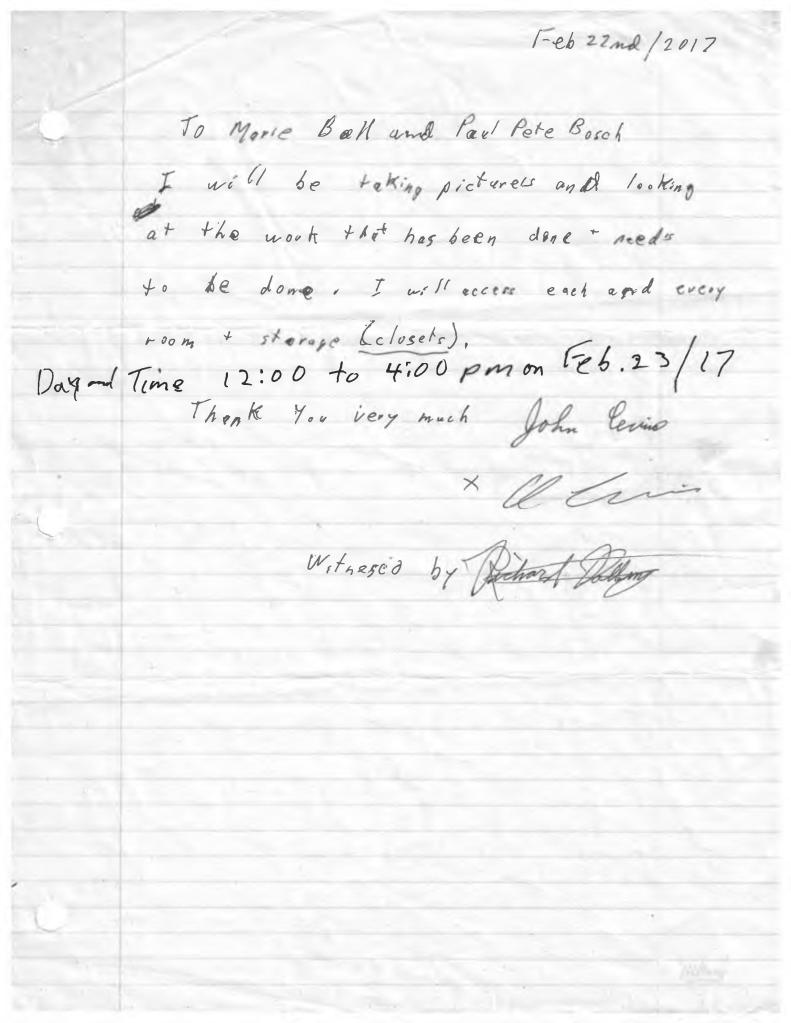 Feb 22nd/2017
To Marie Ball and Paul Pete Bosch
I will be taking picturels and looking
at the work that has been done + needs
to be done. I will access each and every
room + storage (closets).
Day and Time 12:00 to 4:00 pm on Feb. 23/17
Thank You very much John
x
Witnesed by Richard